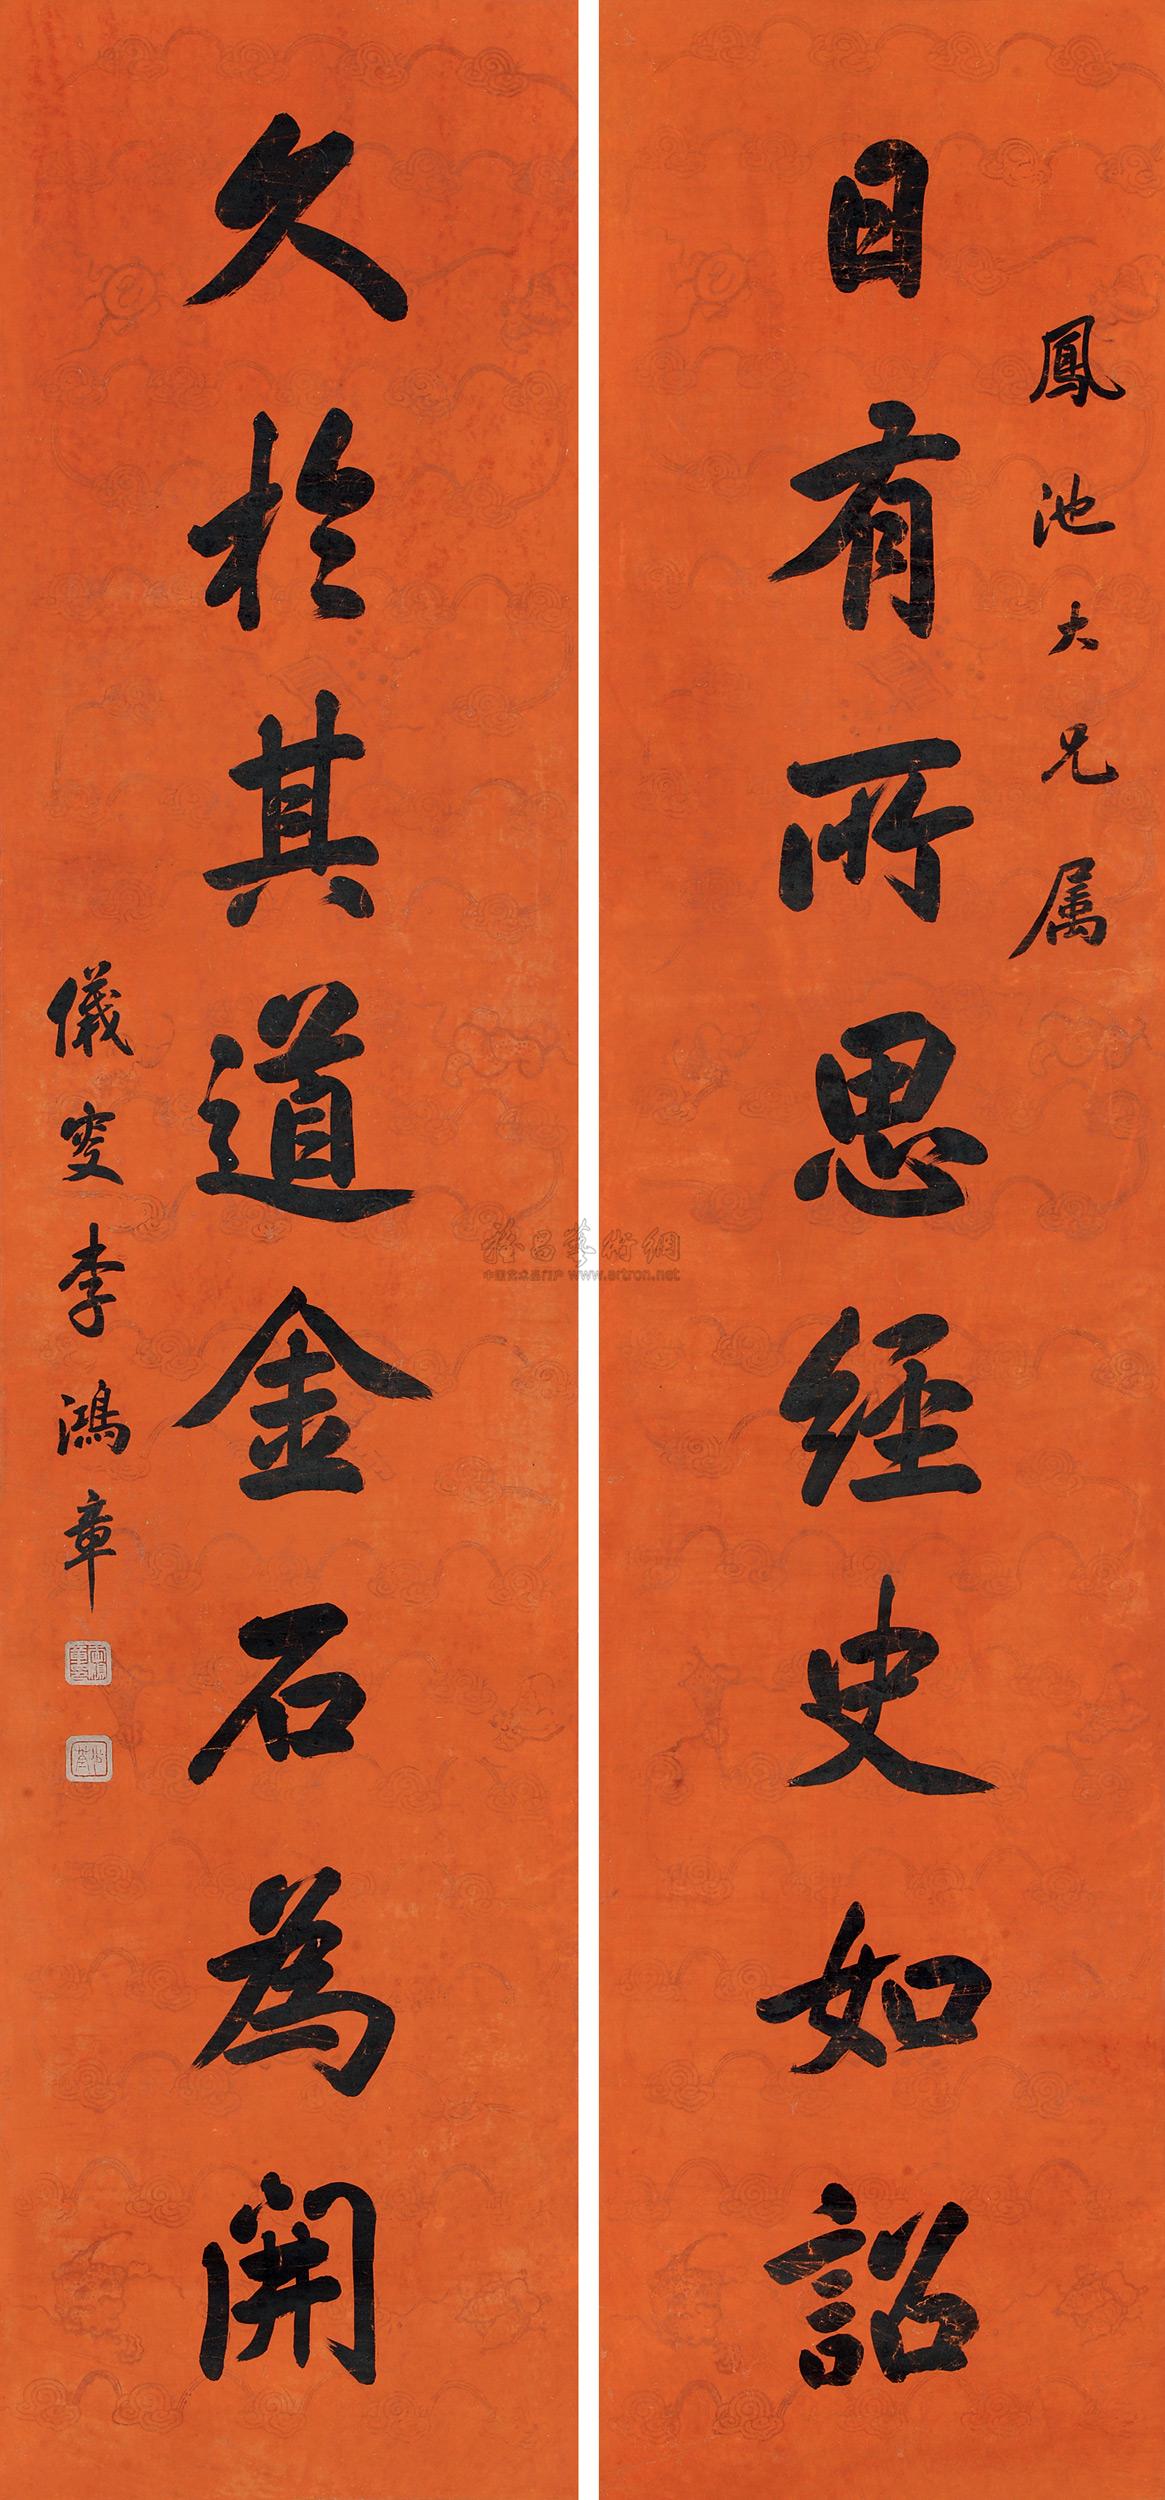 鳳池大兄属
日有所思經史如詔
久於其道金石為開
儀叟李鴻章
雅昌藝術網
中国艺术品门户 www.artron.net